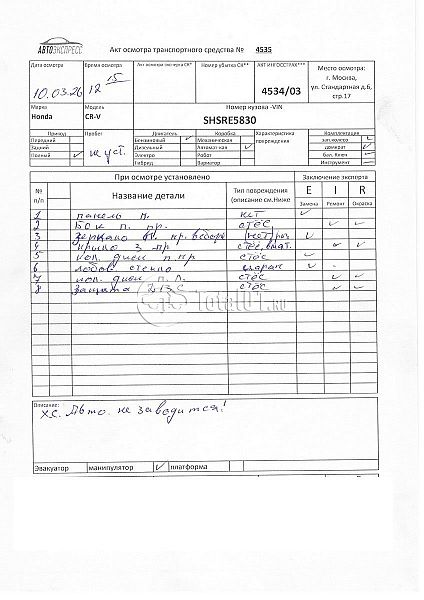 АВТОЭКСПРЕСС
Акт осмотра транспортного средства № 4535
Дата осмотра
Время осмотра
Акт осмотра эксперта СК*
Номер убытка СК**
АКТ ИНГОССТРАХ***
Место осмотра:
г. Москва,
ул. Стандартная д.6,
стр.17
10.03.26
12 15
4534/03
Марка
Модель
Номер кузова -VIN
Honda
CR-V
SHSRE5830
Привод
Пробег
Двигатель
Коробка
Характеристика повреждения
Комплектация
Передний
Бензиновый ✓
Механическая
зап.колесо ✓
Задний
Дизельный
Автомат-кая ✓
домкрат ✓
Полный ✓
не уст.
Электро
Робот
Бал. Ключ
Гибрид
Вариатор
Инструмент
При осмотре установлено
Заключение эксперта
№ п/п
Название детали
Тип повреждения (описание см.Ниже
E
I
R
Замена
Ремонт
Окраска
1 панель п. ✓
2 Бок п. пр. стёс ✓ ✓
3 зеркало пр. в сборе ✓
4 крыло з пр стёс, ✓ ✓
5 п пр стёс ✓
6 лобов. стекло ✓ -
7 п. л. стёс ✓ ✓
8 защита стёс ✓ ✓
Total01.RU
Описание:
х.с. Авто не заводится!
Эвакуатор
манипулятор ✓
платформа